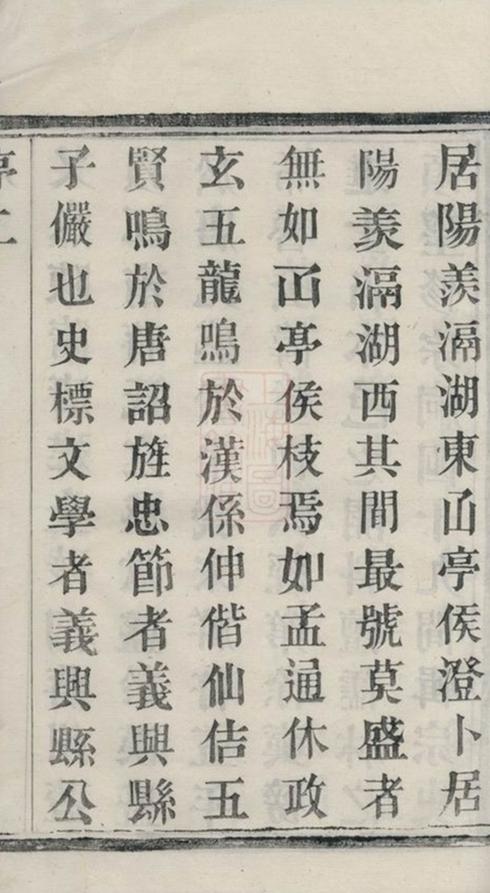 居陽羨滆湖東㐀亭侯澄卜居
陽羨滆湖西其間最號莫盛者
無如㐀亭侯枝焉如孟通休政
玄五龍鳴於漢係仲偕仙佶五
賢鳴於唐詔旌忠節者義興縣
子儼也史標文學者義興縣公
序二